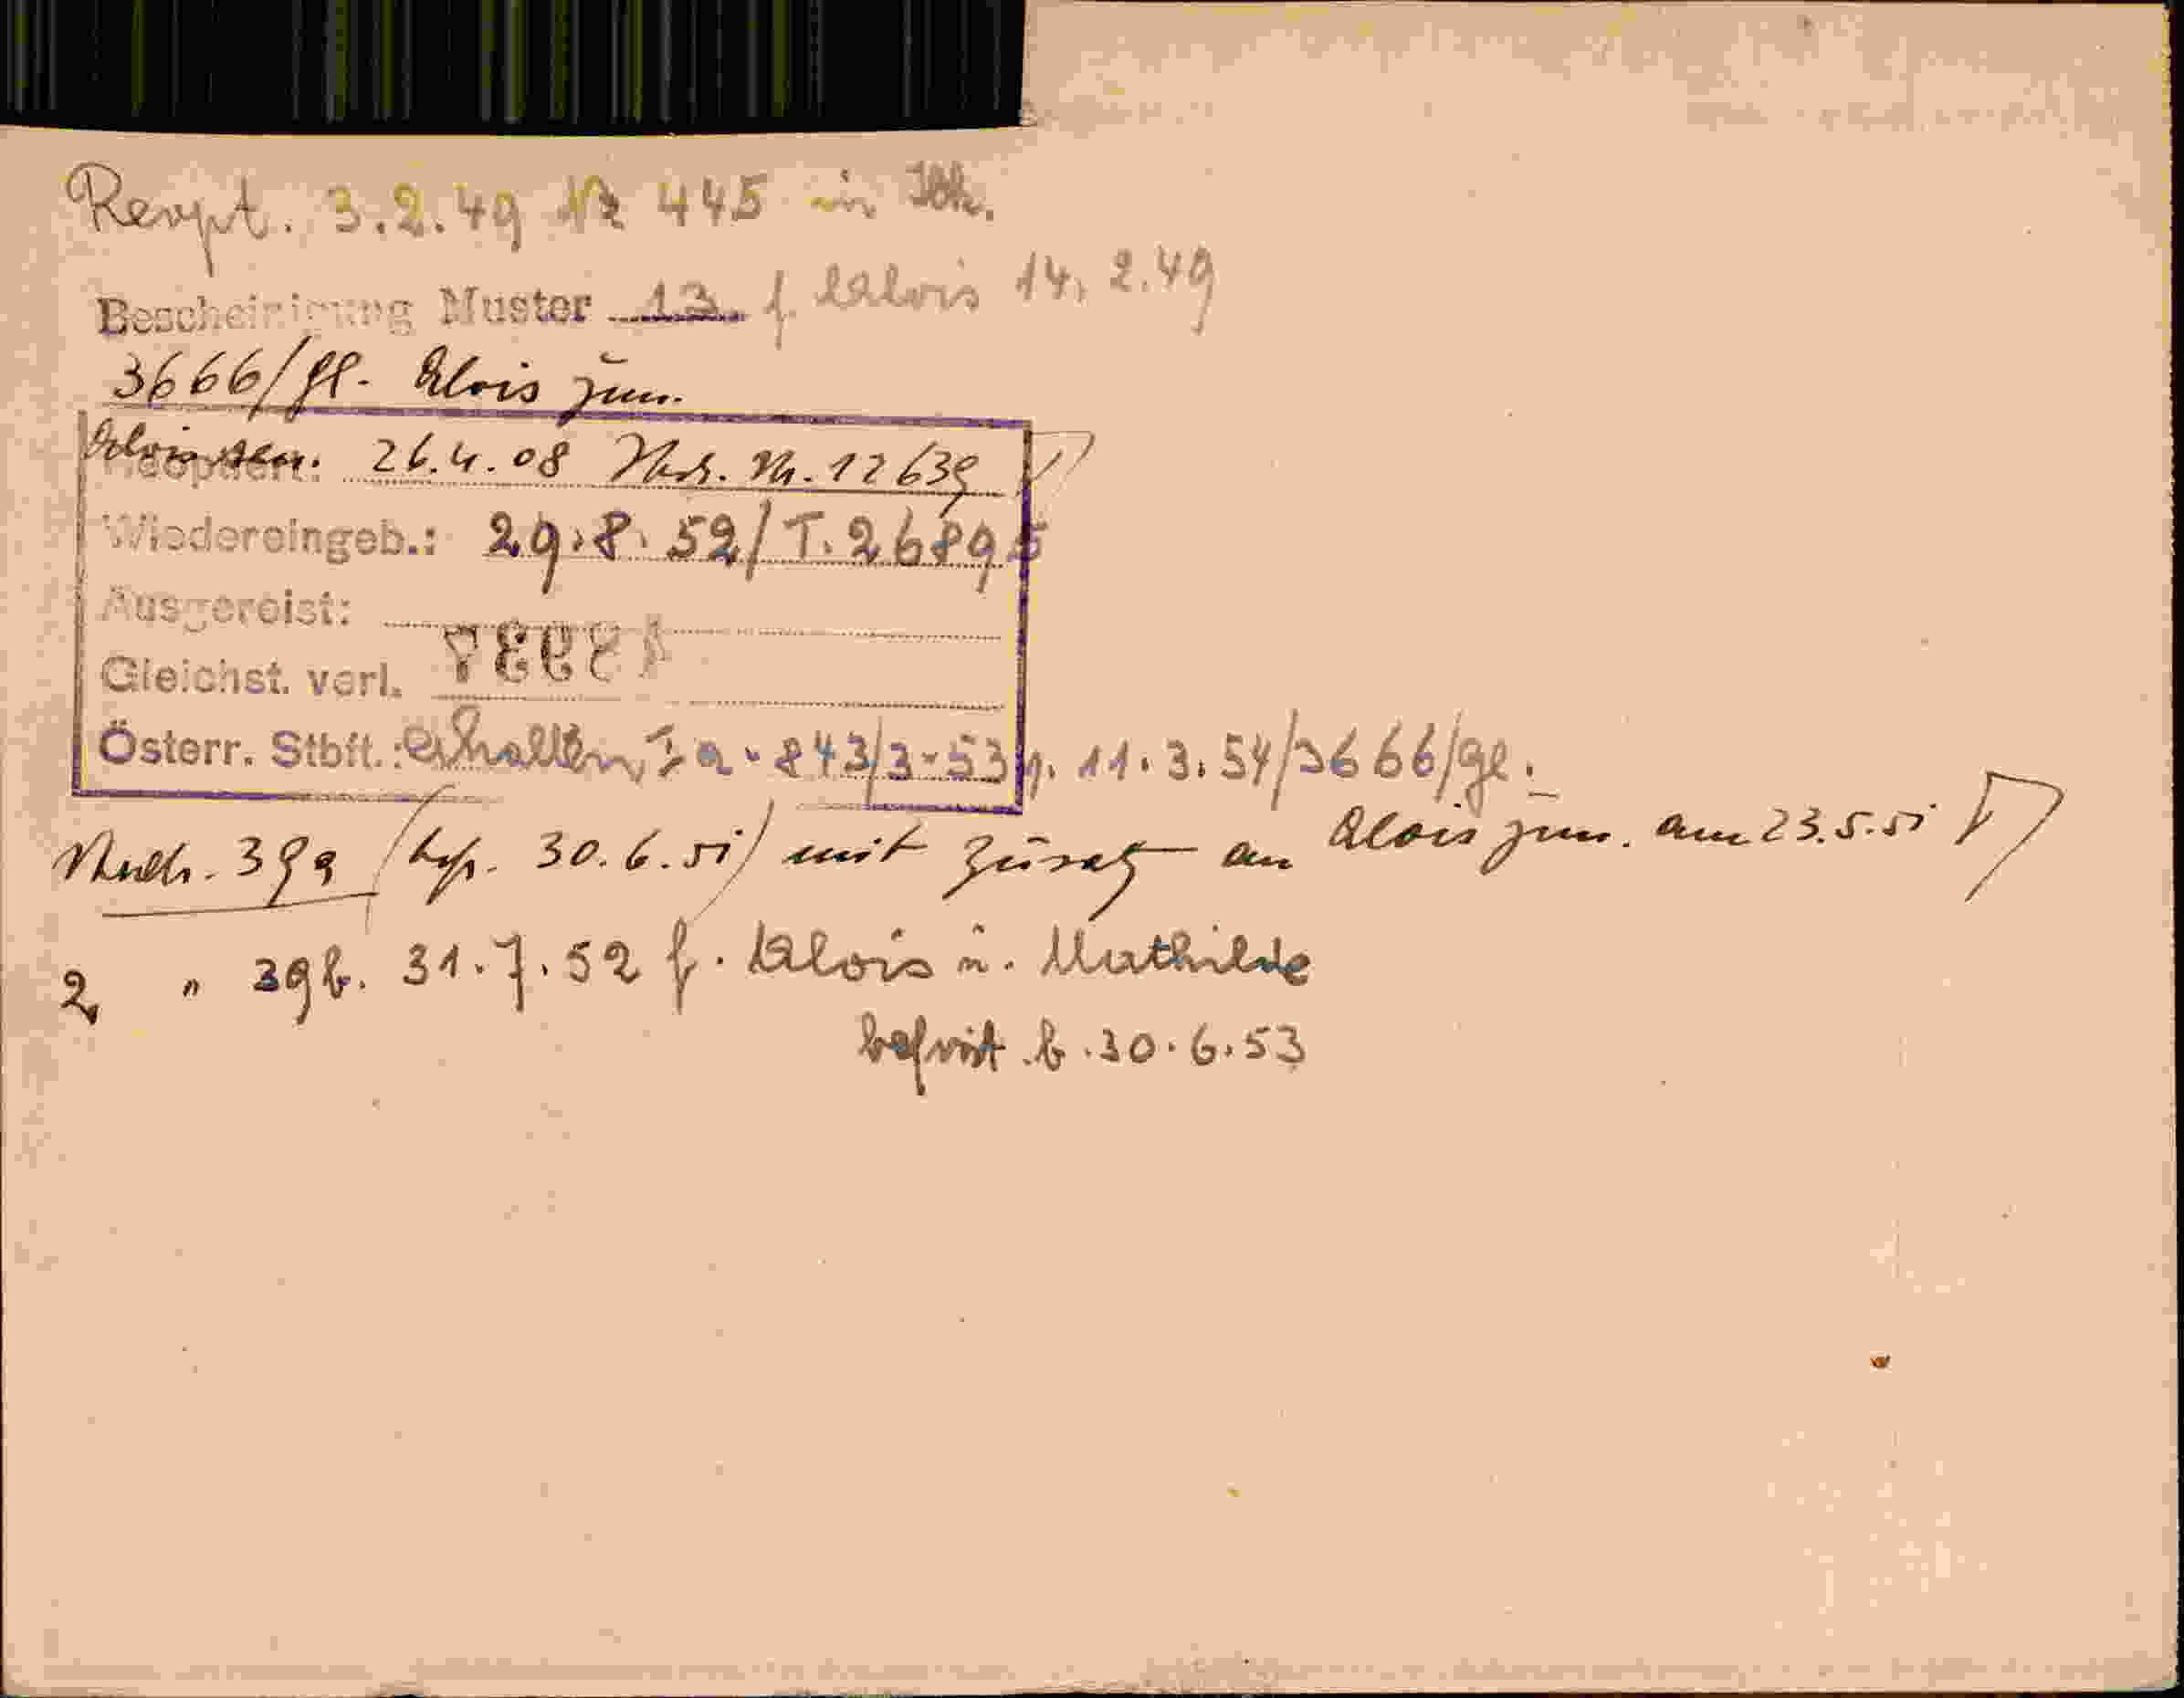 Reopt. 3.2.49 Nr 445 in Ibk.
Bescheinigung Muster 13. f. Alois 14. 2.49
3666/gl. Alois jun.
Reoptiert: Alois sen. 26.4.08 Nr. 12639
Wiedereingeb.: 29.8.52/T.26895
Ausgereist:
Gleichst. verl.
Österr. Stbft.: erhalten Ia-843/3-53 11.3.54/3666/gl.
39a 30.6.51) mit Zusatz an Alois jun. am 23.5.51
2 " 39b. 31.7.52 f. Alois u. Mathilde
befrist. b. 30.6.53